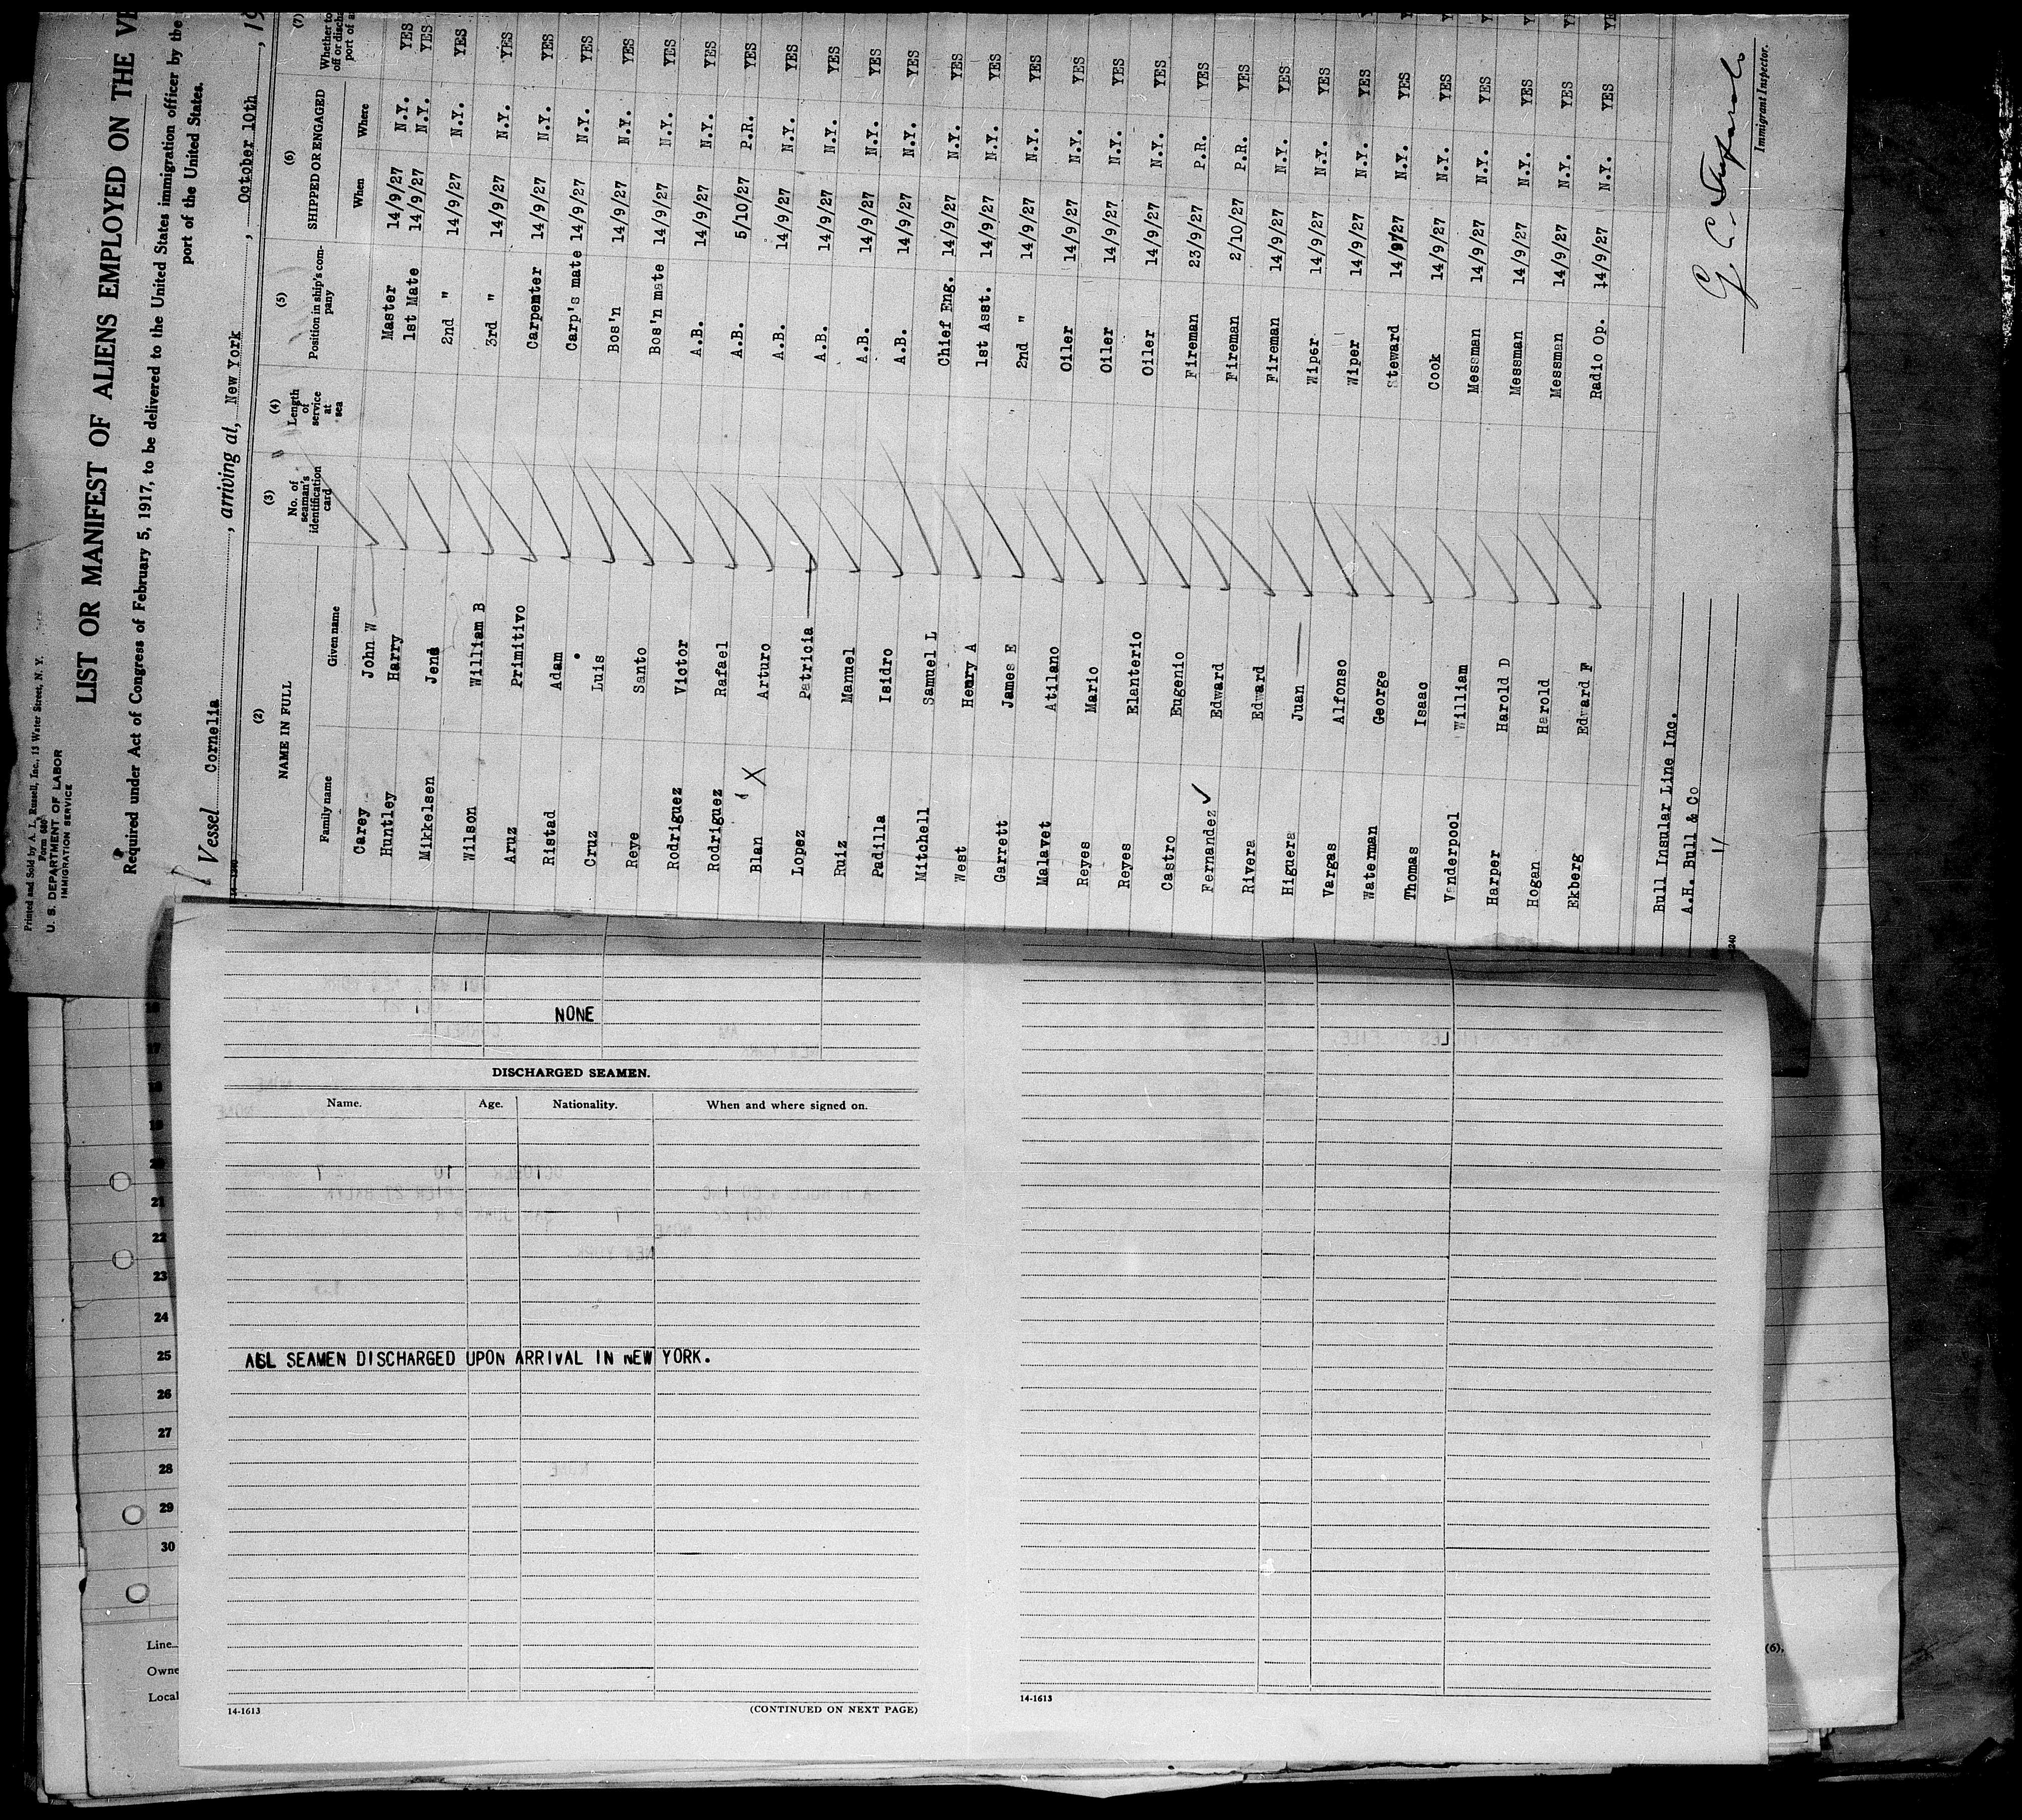 Printed and Sold by A. L. Russell, Inc., 15 Water Street, N. Y.
Form 680
U. S. DEPARTMENT OF LABOR
IMMIGRATION SERVICE
LIST OR MANIFEST OF ALIENS EMPLOYED ON THE VE
Required under Act of Congress of February 5, 1917, to be delivered to the United States immigration officer by the
port of the United States.
Vessel Cornelia , arriving at, New York , October 10th , 19
(2) (3) (4) (5) (6) (7)
NAME IN FULL No. of seaman's identification card Length of service at sea Position in ship's company SHIPPED OR ENGAGED Whether to
off or discha
port of a
Family name Given name When Where
Carey John W Master 14/9/27 N.Y. YES
Huntley Harry 1st Mate 14/9/27 N.Y. YES
Mikkelsen Jens 2nd " 14/9/27 N.Y. YES
Wilson William B 3rd " 14/9/27 N.Y. YES
Aruz Primitivo Carpenter 14/9/27 N.Y. YES
Ristad Adam Carp's mate 14/9/27 N.Y. YES
Cruz Luis Bos'n 14/9/27 N.Y. YES
Reye Santo Bos'n mate 14/9/27 N.Y. YES
Rodriguez Victor A.B. 14/9/27 N.Y. YES
Rodriguez Rafael A.B. 5/10/27 P.R. YES
Blan X Arturo A.B. 14/9/27 N.Y. YES
Lopez Patricia A.B. 14/9/27 N.Y. YES
Ruiz Manuel A.B. 14/9/27 N.Y. YES
Padilla Isidro A.B. 14/9/27 N.Y. YES
Mitchell Samuel L Chief Eng. 14/9/27 N.Y. YES
West Henry A 1st Asst. 14/9/27 N.Y. YES
Garrett James E 2nd " 14/9/27 N.Y. YES
Malavet Atilano Oiler 14/9/27 N.Y. YES
Reyes Mario Oiler 14/9/27 N.Y. YES
Reyes Elanterio Oiler 14/9/27 N.Y. YES
Castro Eugenio Fireman 23/9/27 P.R. YES
Fernandez Edward Fireman 2/10/27 P.R. YES
Rivera Edward Fireman 14/9/27 N.Y. YES
Higuera Juan Wiper 14/9/27 N.Y. YES
Vargas Alfonso Wiper 14/9/27 N.Y. YES
Waterman George Steward 14/9/27 N.Y. YES
Thomas Isaac Cook 14/9/27 N.Y. YES
Vanderpool William Messman 14/9/27 N.Y. YES
Harper Harold D Messman 14/9/27 N.Y. YES
Hogan Harold Messman 14/9/27 N.Y. YES
Ekberg Edward F Radio Op. 14/9/27 N.Y. YES
Bull Insular Line Inc.
A.H. Bull & Co
Immigrant Inspector.
NONE
DISCHARGED SEAMEN.
Name. Age. Nationality. When and where signed on.
ALL SEAMEN DISCHARGED UPON ARRIVAL IN NEW YORK.
14-1613 (CONTINUED ON NEXT PAGE)
14-1613
17
18
19
20
21
22
23
24
25
26
27
28
29
30
Line
Owne
Local
(6),